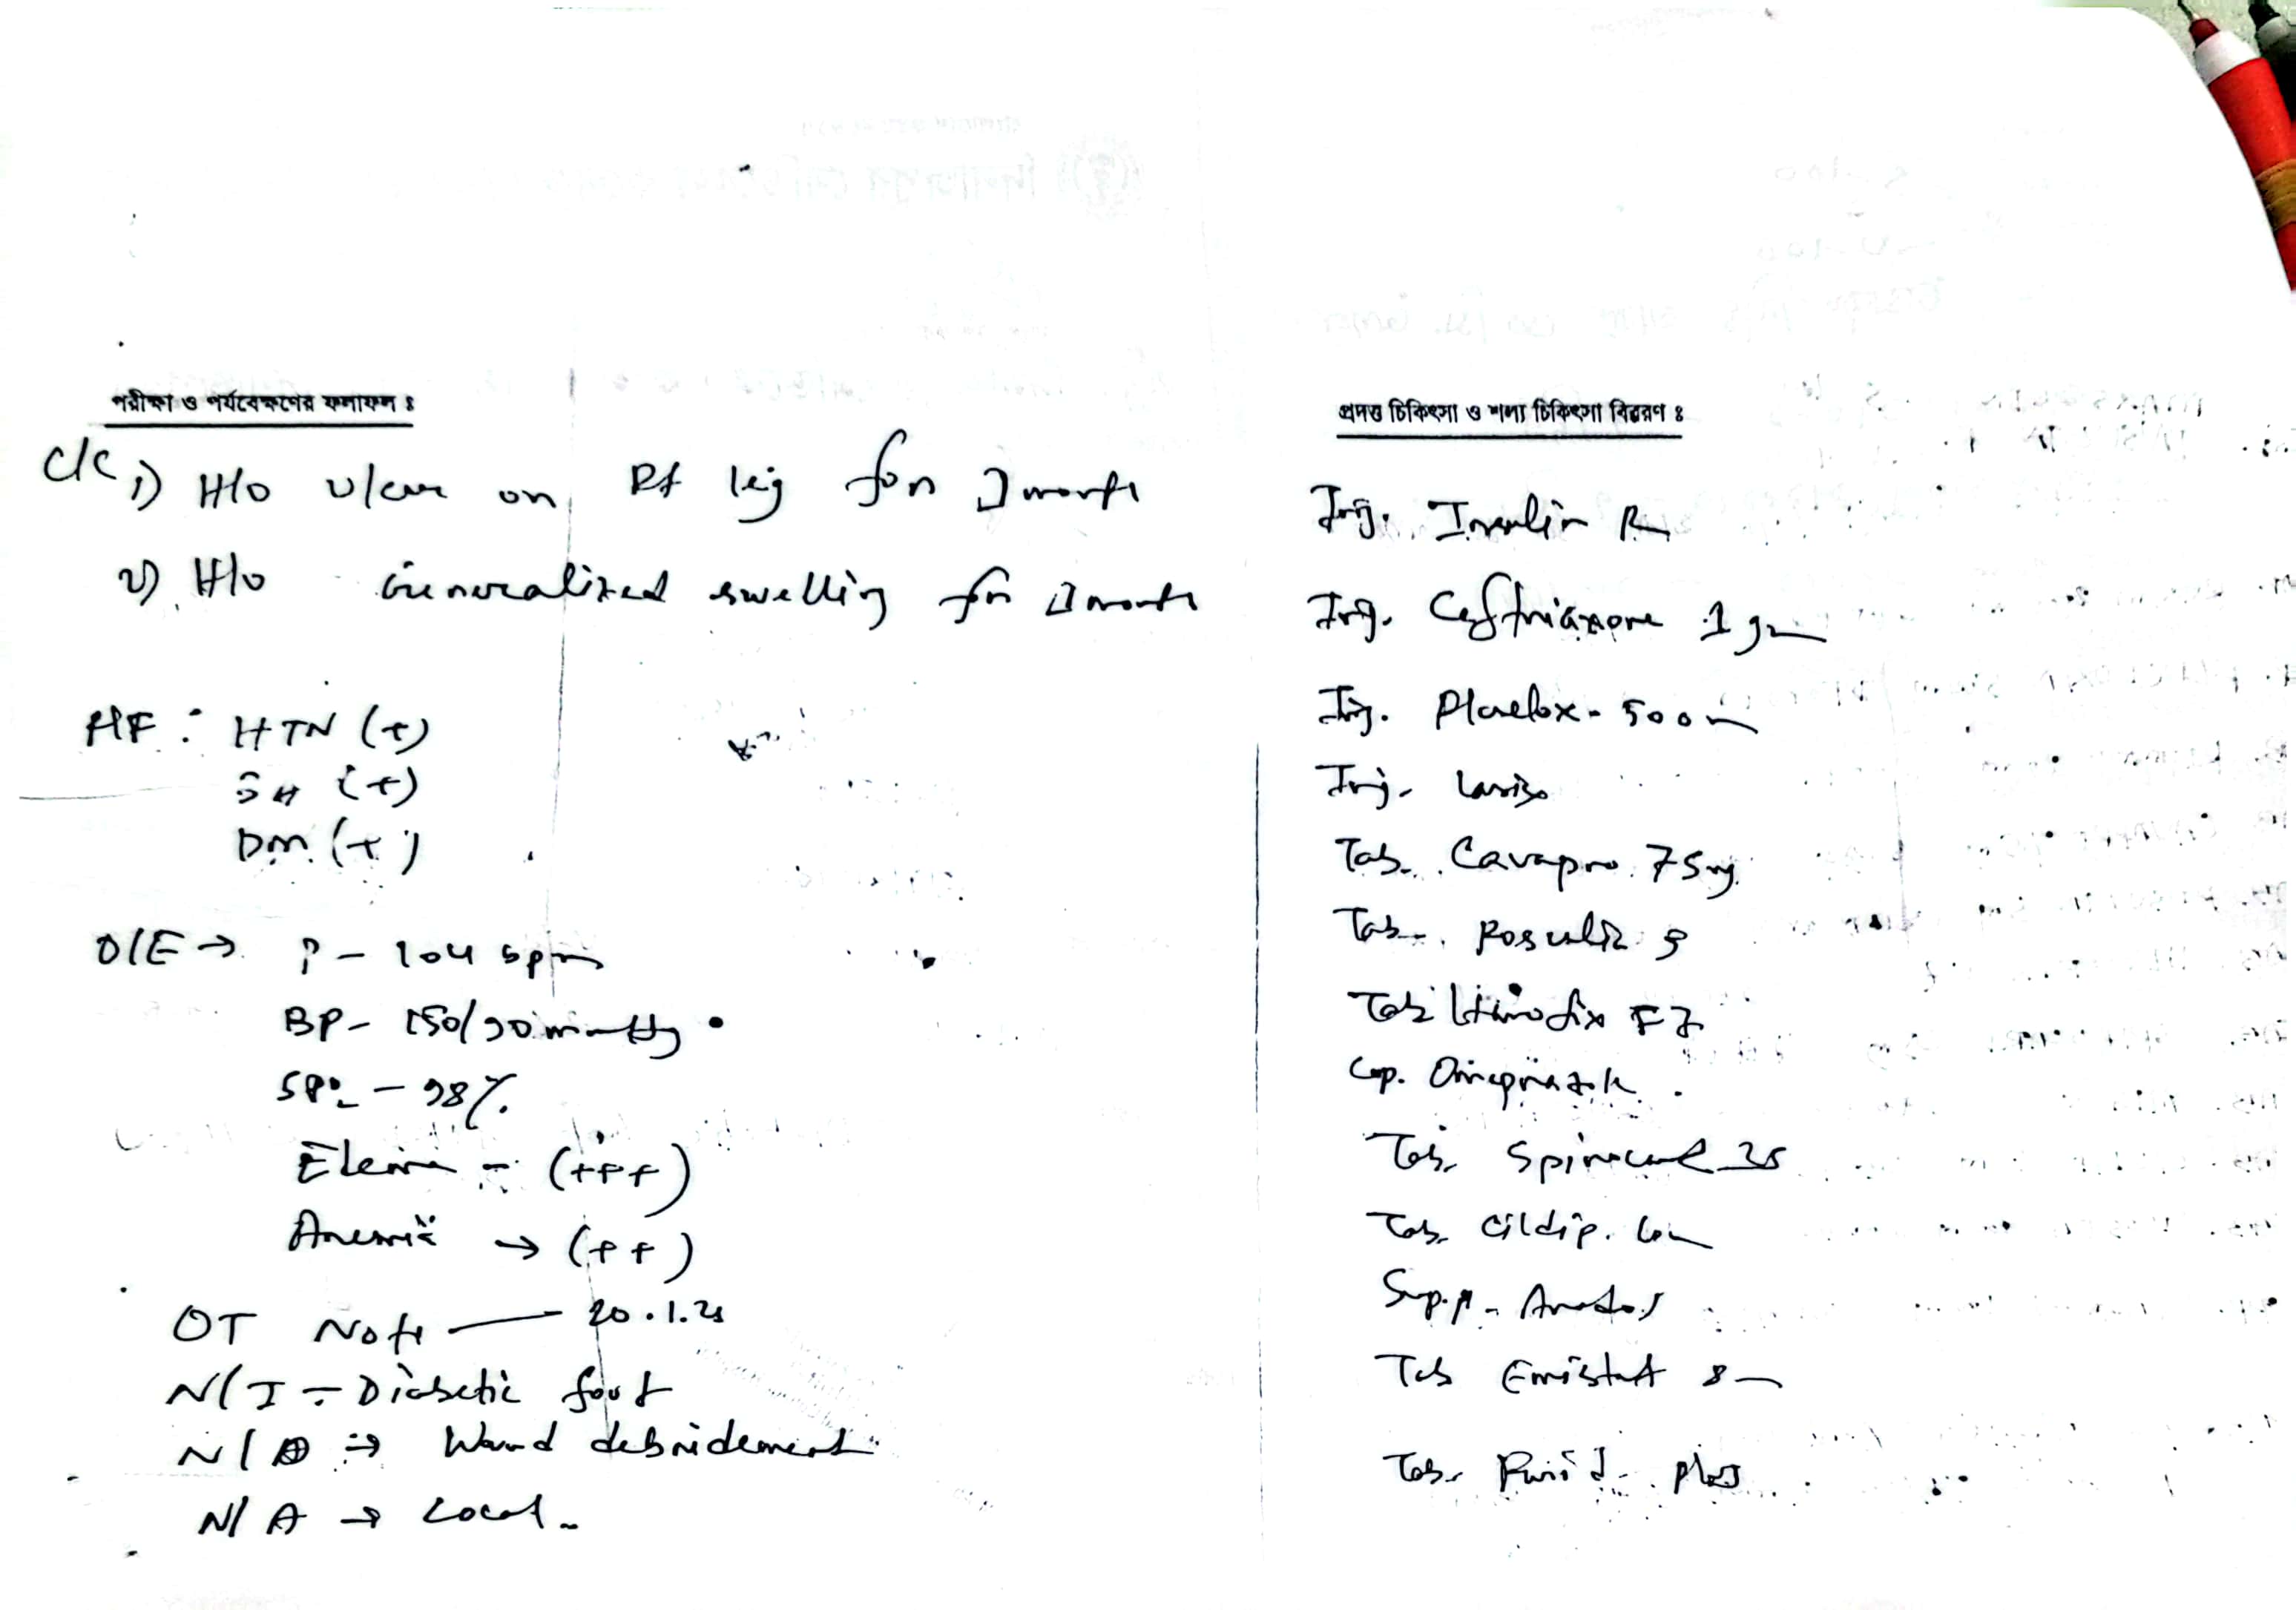 পরীক্ষা ও পর্যবেক্ষণের ফলাফল ঃ
C/C 1) H/O ulcer on Rt leg for 1 month
2) H/O Generalized swelling for 1 month
HTN (+)
DM (+)
O/E → P - 104 bpm
BP - 150/90 mmHg
SPO2 - 98%
(+++)
Anemia → (++)
OT Note — 20.1.25
N/I - Diabetic foot
N/O → Wound debridement
N/A → Local
প্রদত্ত চিকিৎসা ও শল্য চিকিৎসা বিবরণ ঃ
Inj. Insulin R
Inj. Ceftriaxone 1 gm
Inj. 500
Inj. Lasix
Tab. Cavapro 75 mg
Tab. 5
Tab
Cap. Omeprazole
Tab. Spirocard 25
Tab. Cildip
Supp.
Tab Emistat 8
Tab. plus